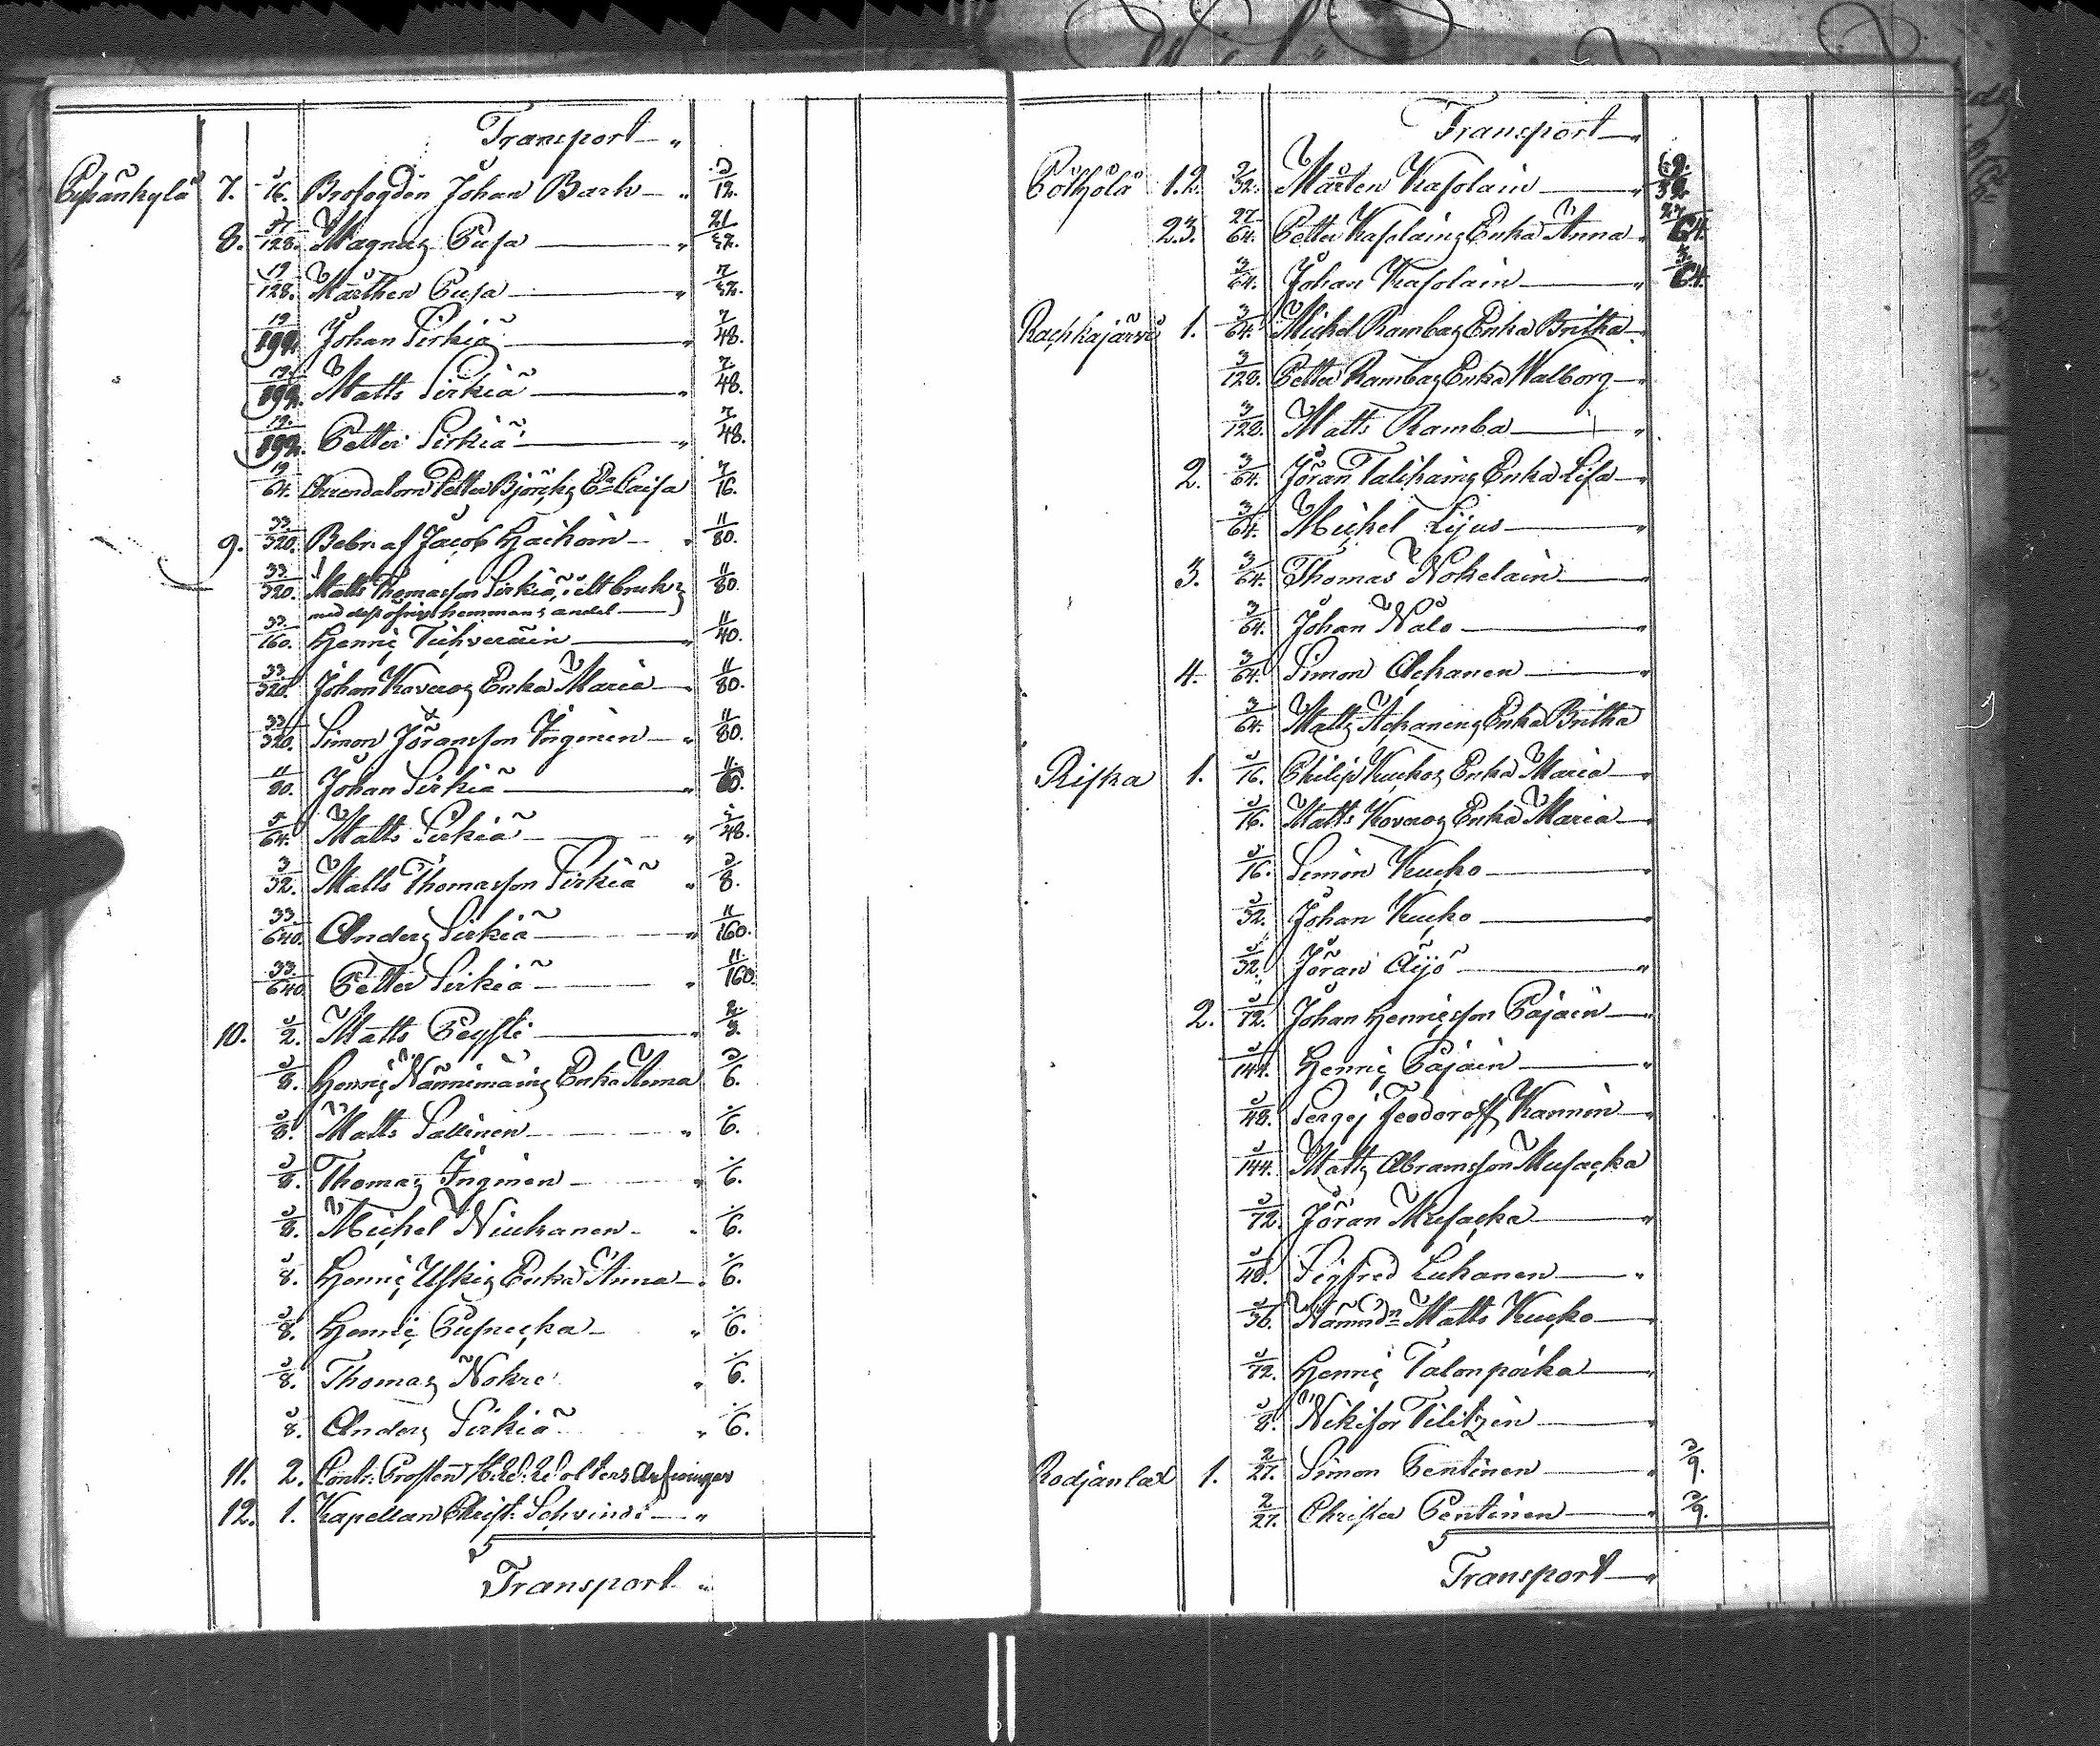 Transport
Pusankylä 7. 1/16. Brofogden Johan Barh 1/12.
8. 57/128. Magnus Pusa 21/32.
19/128. Mårthen Pusa 7/32.
19/192. Johan Sirkiä 7/48.
19/192. Matts Sirkiä 7/48.
19/192. Petter Sirkiä 7/48.
19/64. Arrendatorn Petter Björks Ea Caisa 7/16.
9. 33/320. Bebr. af Jacob Haikoin 11/80.
33/320. Matts Thomasson Sirkiä, i ett bruk 11/80.
med dess öfriga hemmans andel
33/160. Henric Tichveräin 11/40.
33/320. Johan Koveros Enka Maria 11/80.
33/320. Simon Jöransson Inginen 11/80.
11/80. Johan Sirkiä 11/60.
5/64. Matts Sirkiä 5/48.
3/32. Matts Thomasson Sirkiä 1/8.
33/640. Anders Sirkiä 11/160.
33/640. Petter Sirkiä 11/160.
10. 1/2. Matts Peysti 2/3.
1/8. Henric Nännimäins Enka Anna 1/6.
1/8. Matts Sallinen 1/6.
1/8. Thomas Inginen 1/6.
1/8. Michel Niukanen 1/6.
1/8. Henric Uskis Enka Anna 1/6.
1/8. Henric Pusnecka 1/6.
1/8. Thomas Nokre 1/6.
1/8. Anders Sirkiä 1/6.
11. 2. Contr: Prosten Arfvingar
12. 1. Kapellan Christ. Schvindt
Transport
Transport
Pölhölä 1.2. 9/32. Mårten Kasolain 9/32.
2.3. 27/64. Petter Kasolains Enka Anna 27/64.
3/64. Johan Kasolain 3/64.
Rachkajärvi 1. 3/64. Michel Rambas Enka Britha
3/128. Petter Rambas Enka Walborg
3/128. Matts Ramba
2. 3/64. Jöran Talikains Enka Lisa
3/64. Michel Lijus
3. 3/64. Thomas Nokelain
3/64. Johan Nalo
4. 3/64. Simon Ackanen
3/64. Matts Ackanens Enka Britha
Riska 1. 1/16. Philip Kuckos Enka Maria
1/16. Matts Koveros Enka Maria
1/16. Simon Kucko
1/32. Johan Kucko
1/32. Jöran Äijö
2. 1/72. Johan Henricsson Pajain
1/144. Henric Pajain
1/48. Sergej Feodoroff Kannin
1/144. Matts Abramsson Musacka
1/72. Jöran Musacka
1/48. Sigfred Lukanen
1/36. Nämndn Matts Kucko
1/72. Henric Talonpoika
1/8. Nikifor Tilitzin
Rodjanlax 1. 2/27. Simon Pentinen 1/9.
2/27. Christer Pentinen 1/9.
Transport